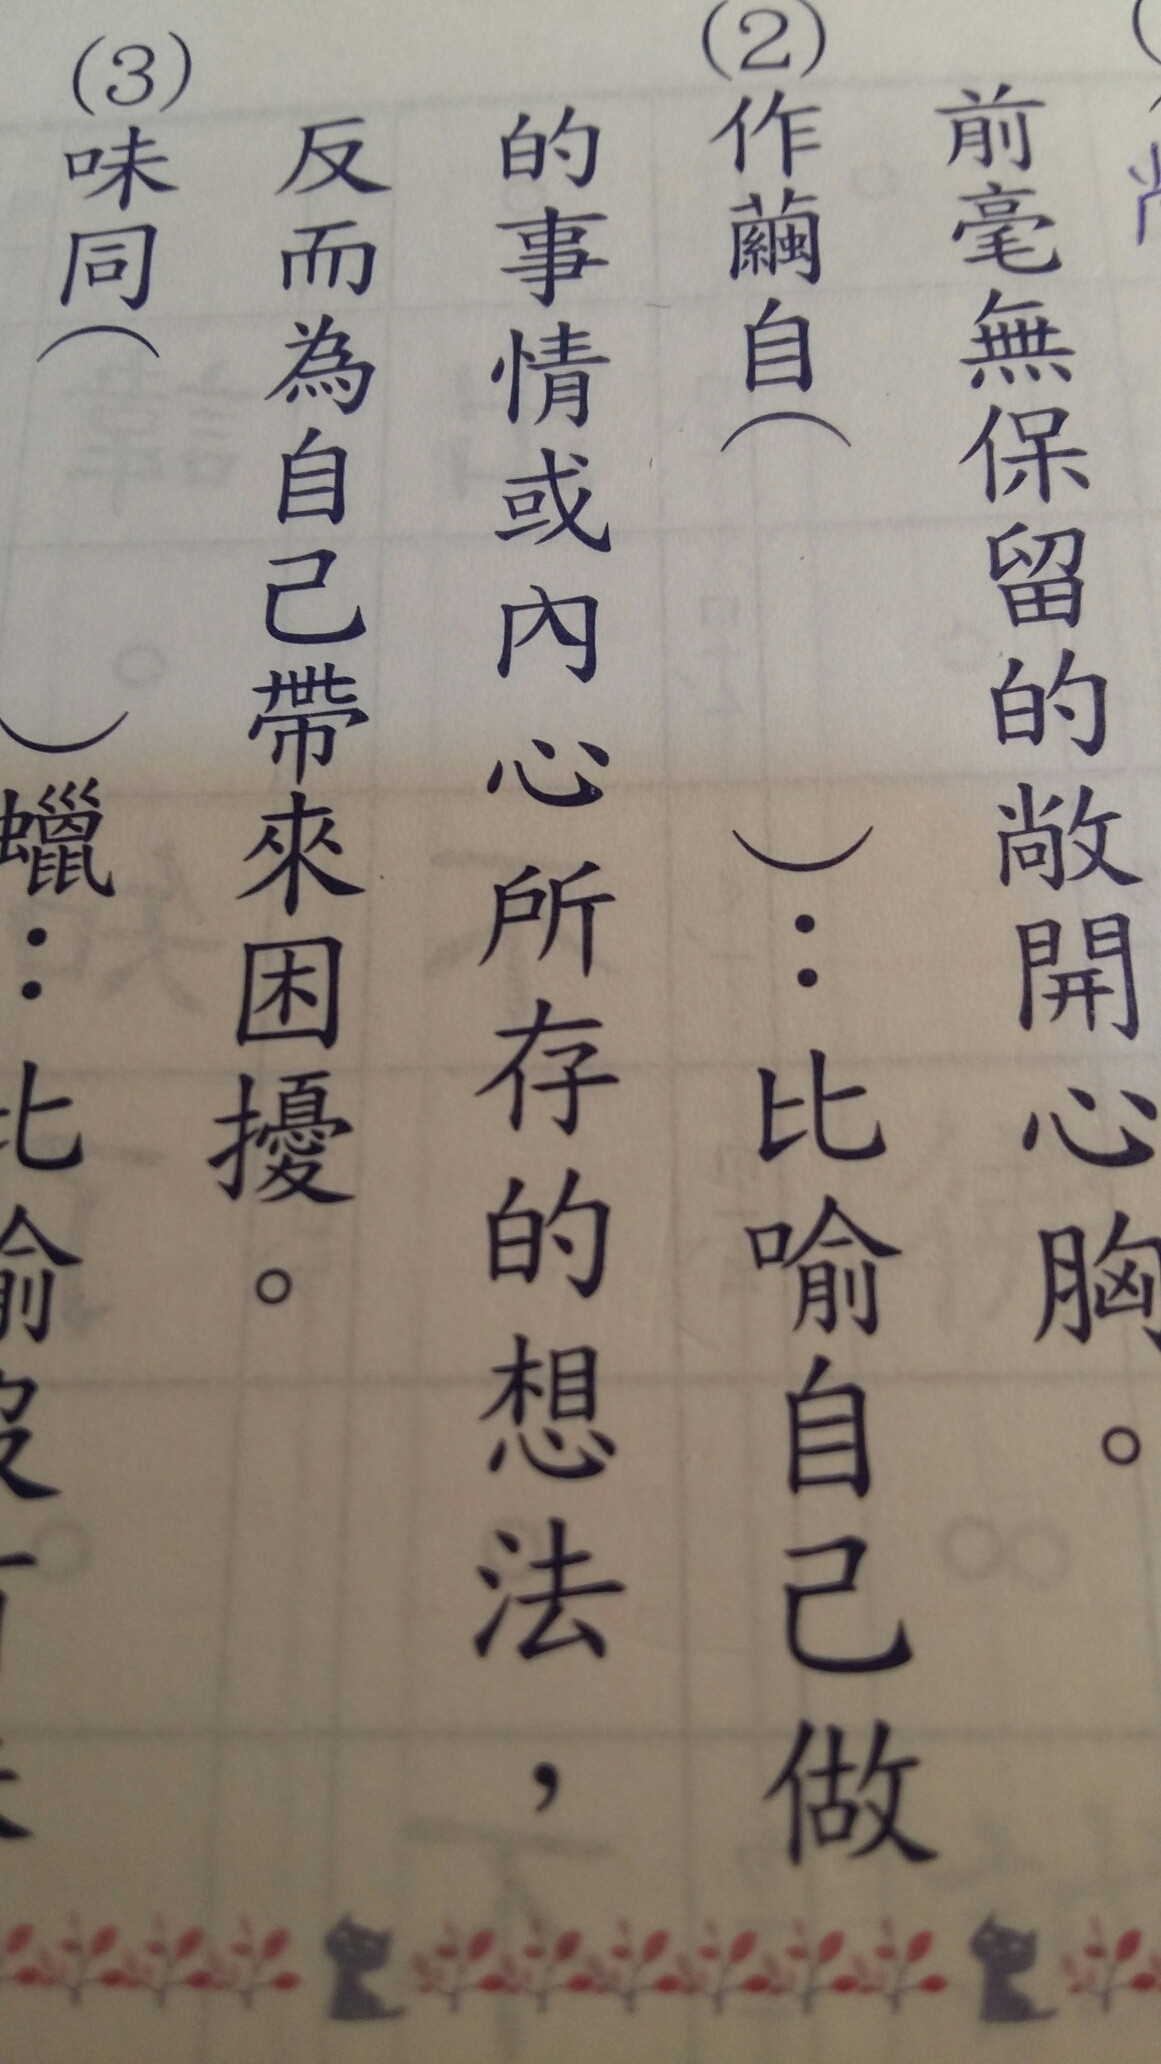 前毫無保留的敞開心胸。
(2)作繭自（ ）：比喻自己做
的事情或內心所存的想法，
反而為自己帶來困擾。
(3)味同（ ）蠟：比喻沒有